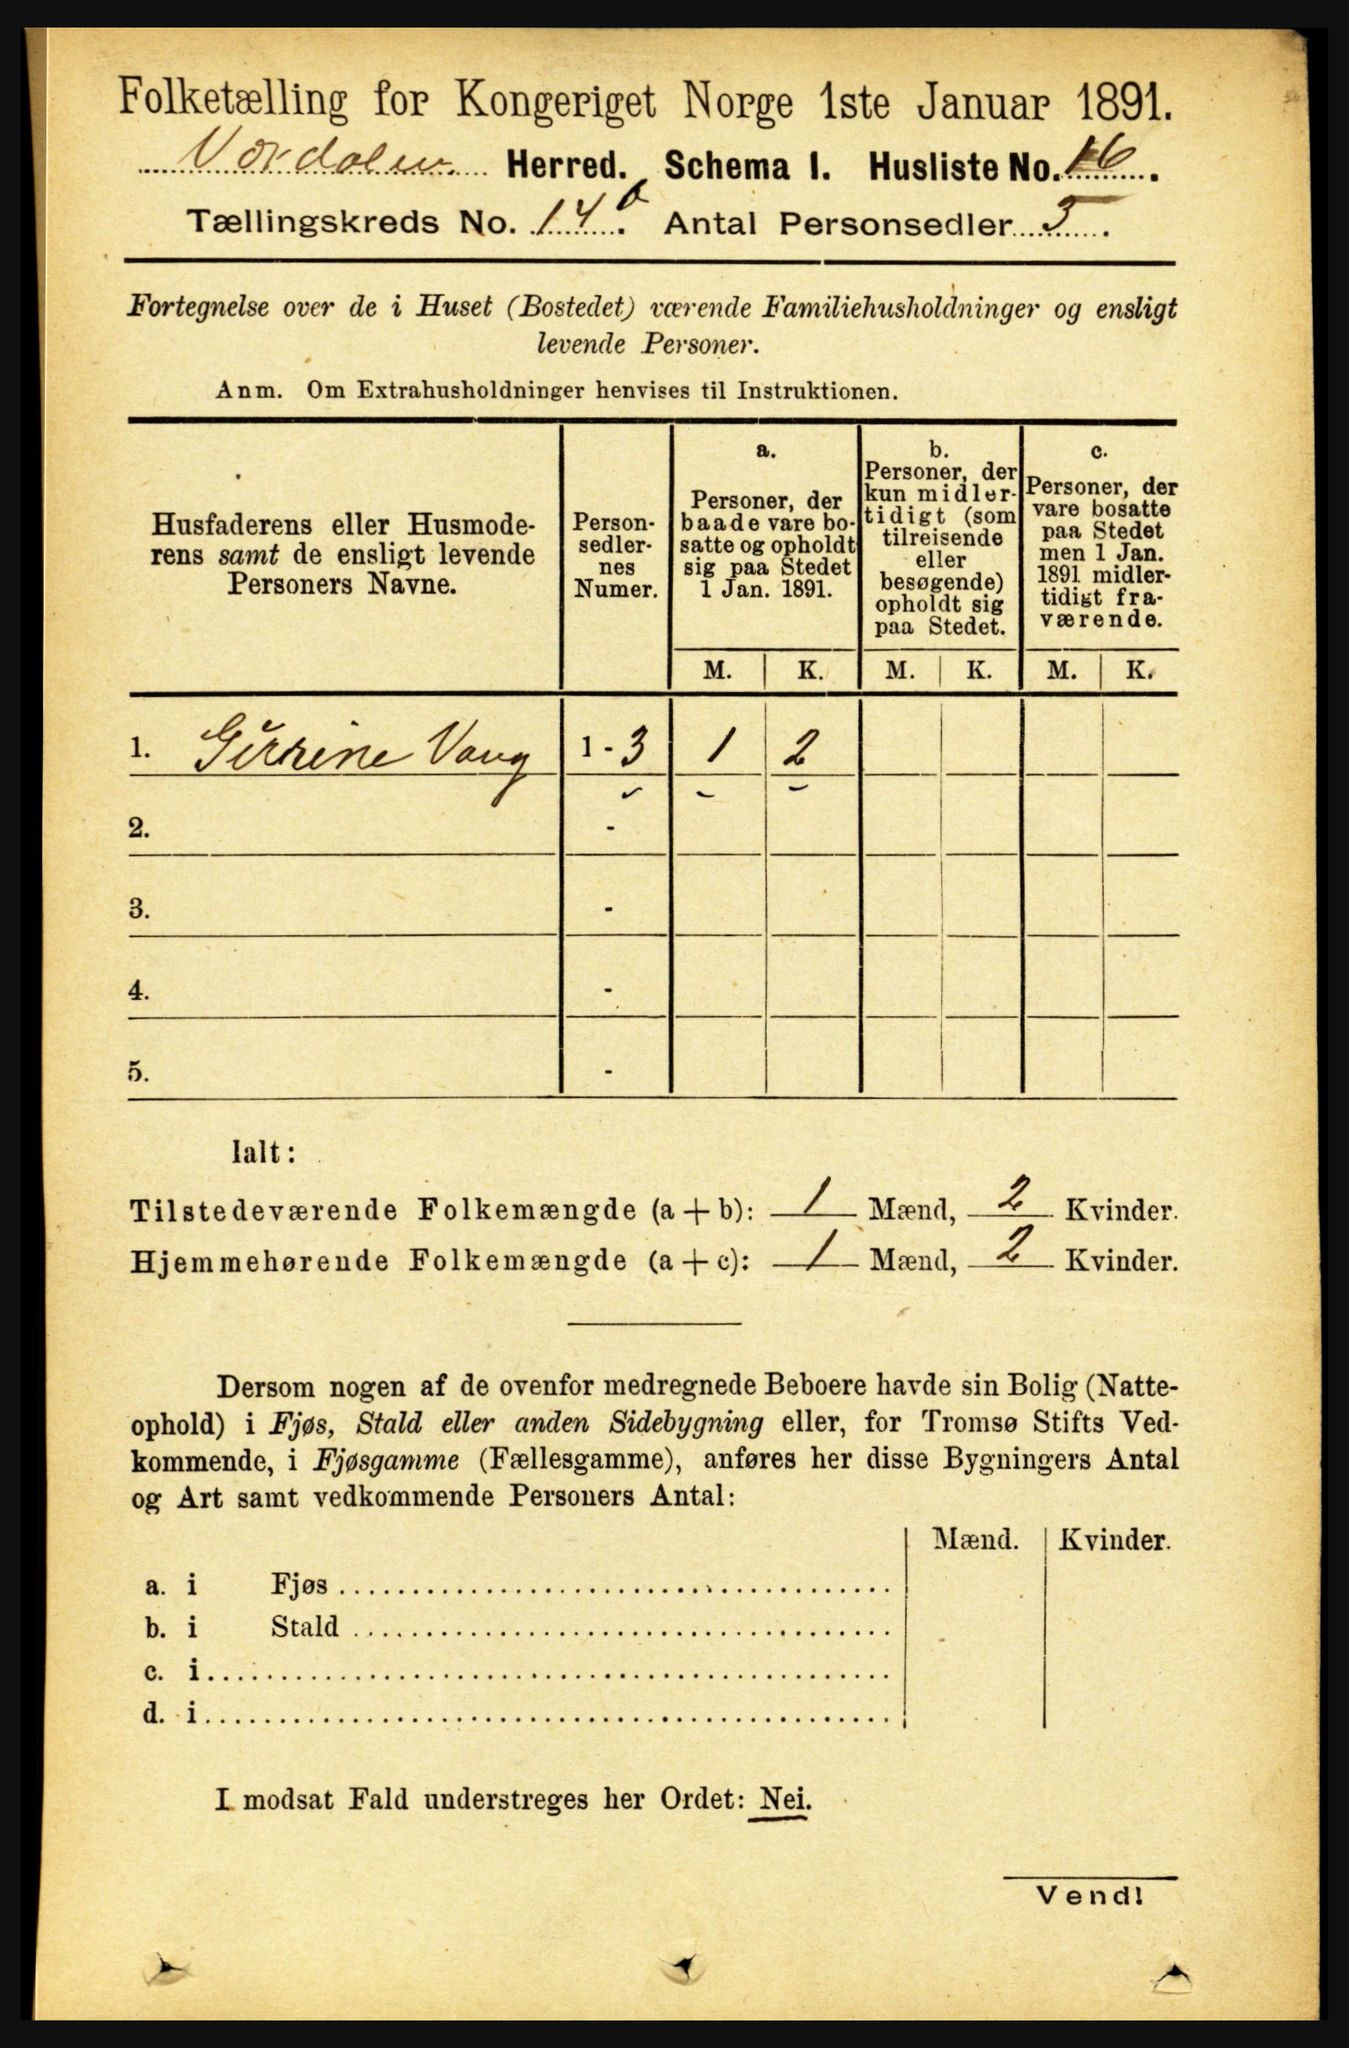 Folketælling for Kongeriget Norge 1ste Januar 1891.
Værdalen Herred. Schema 1. Husliste No. 16.
Tællingskreds No. 14 b. Antal Personsedler 3.
Fortegnelse over de i Huset (Bostedet) værende Familiehusholdninger og ensligt
levende Personer.
Anm. Om Extrahusholdninger henvises til Instruktionen.
Husfaderens eller Husmode-
rens samt de ensligt levende
Personers Navne.
Person-
sedler-
nes
Numer.
a.
Personer, der
baade vare bo-
satte og opholdt
sig paa Stedet
1 Jan. 1891.
b.
Personer, der
kun midler-
tidigt (som
tilreisende
eller
besøgende)
opholdt sig
paa Stedet.
c.
Personer, der
vare bosatte
paa Stedet
men 1 Jan.
1891 midler-
tidigt fra-
værende.
M. K. M. K. M. K.
1. Vang 1 - 3 1 2
2. -
3. -
4. -
5. -
Ialt:
Tilstedeværende Folkemængde (a + b): 1 Mænd, 2 Kvinder.
Hjemmehørende Folkemængde (a + c): 1 Mænd, 2 Kvinder.
Dersom nogen af de ovenfor medregnede Beboere havde sin Bolig (Natte-
ophold) i Fjøs, Stald eller anden Sidebygning eller, for Tromsø Stifts Ved-
kommende, i Fjøsgamme (Fællesgamme), anføres her disse Bygningers Antal
og Art samt vedkommende Personers Antal:
Mænd. Kvinder.
a. i Fjøs
b. i Stald
c. i
d. i
I modsat Fald understreges her Ordet: Nei.
Vend!